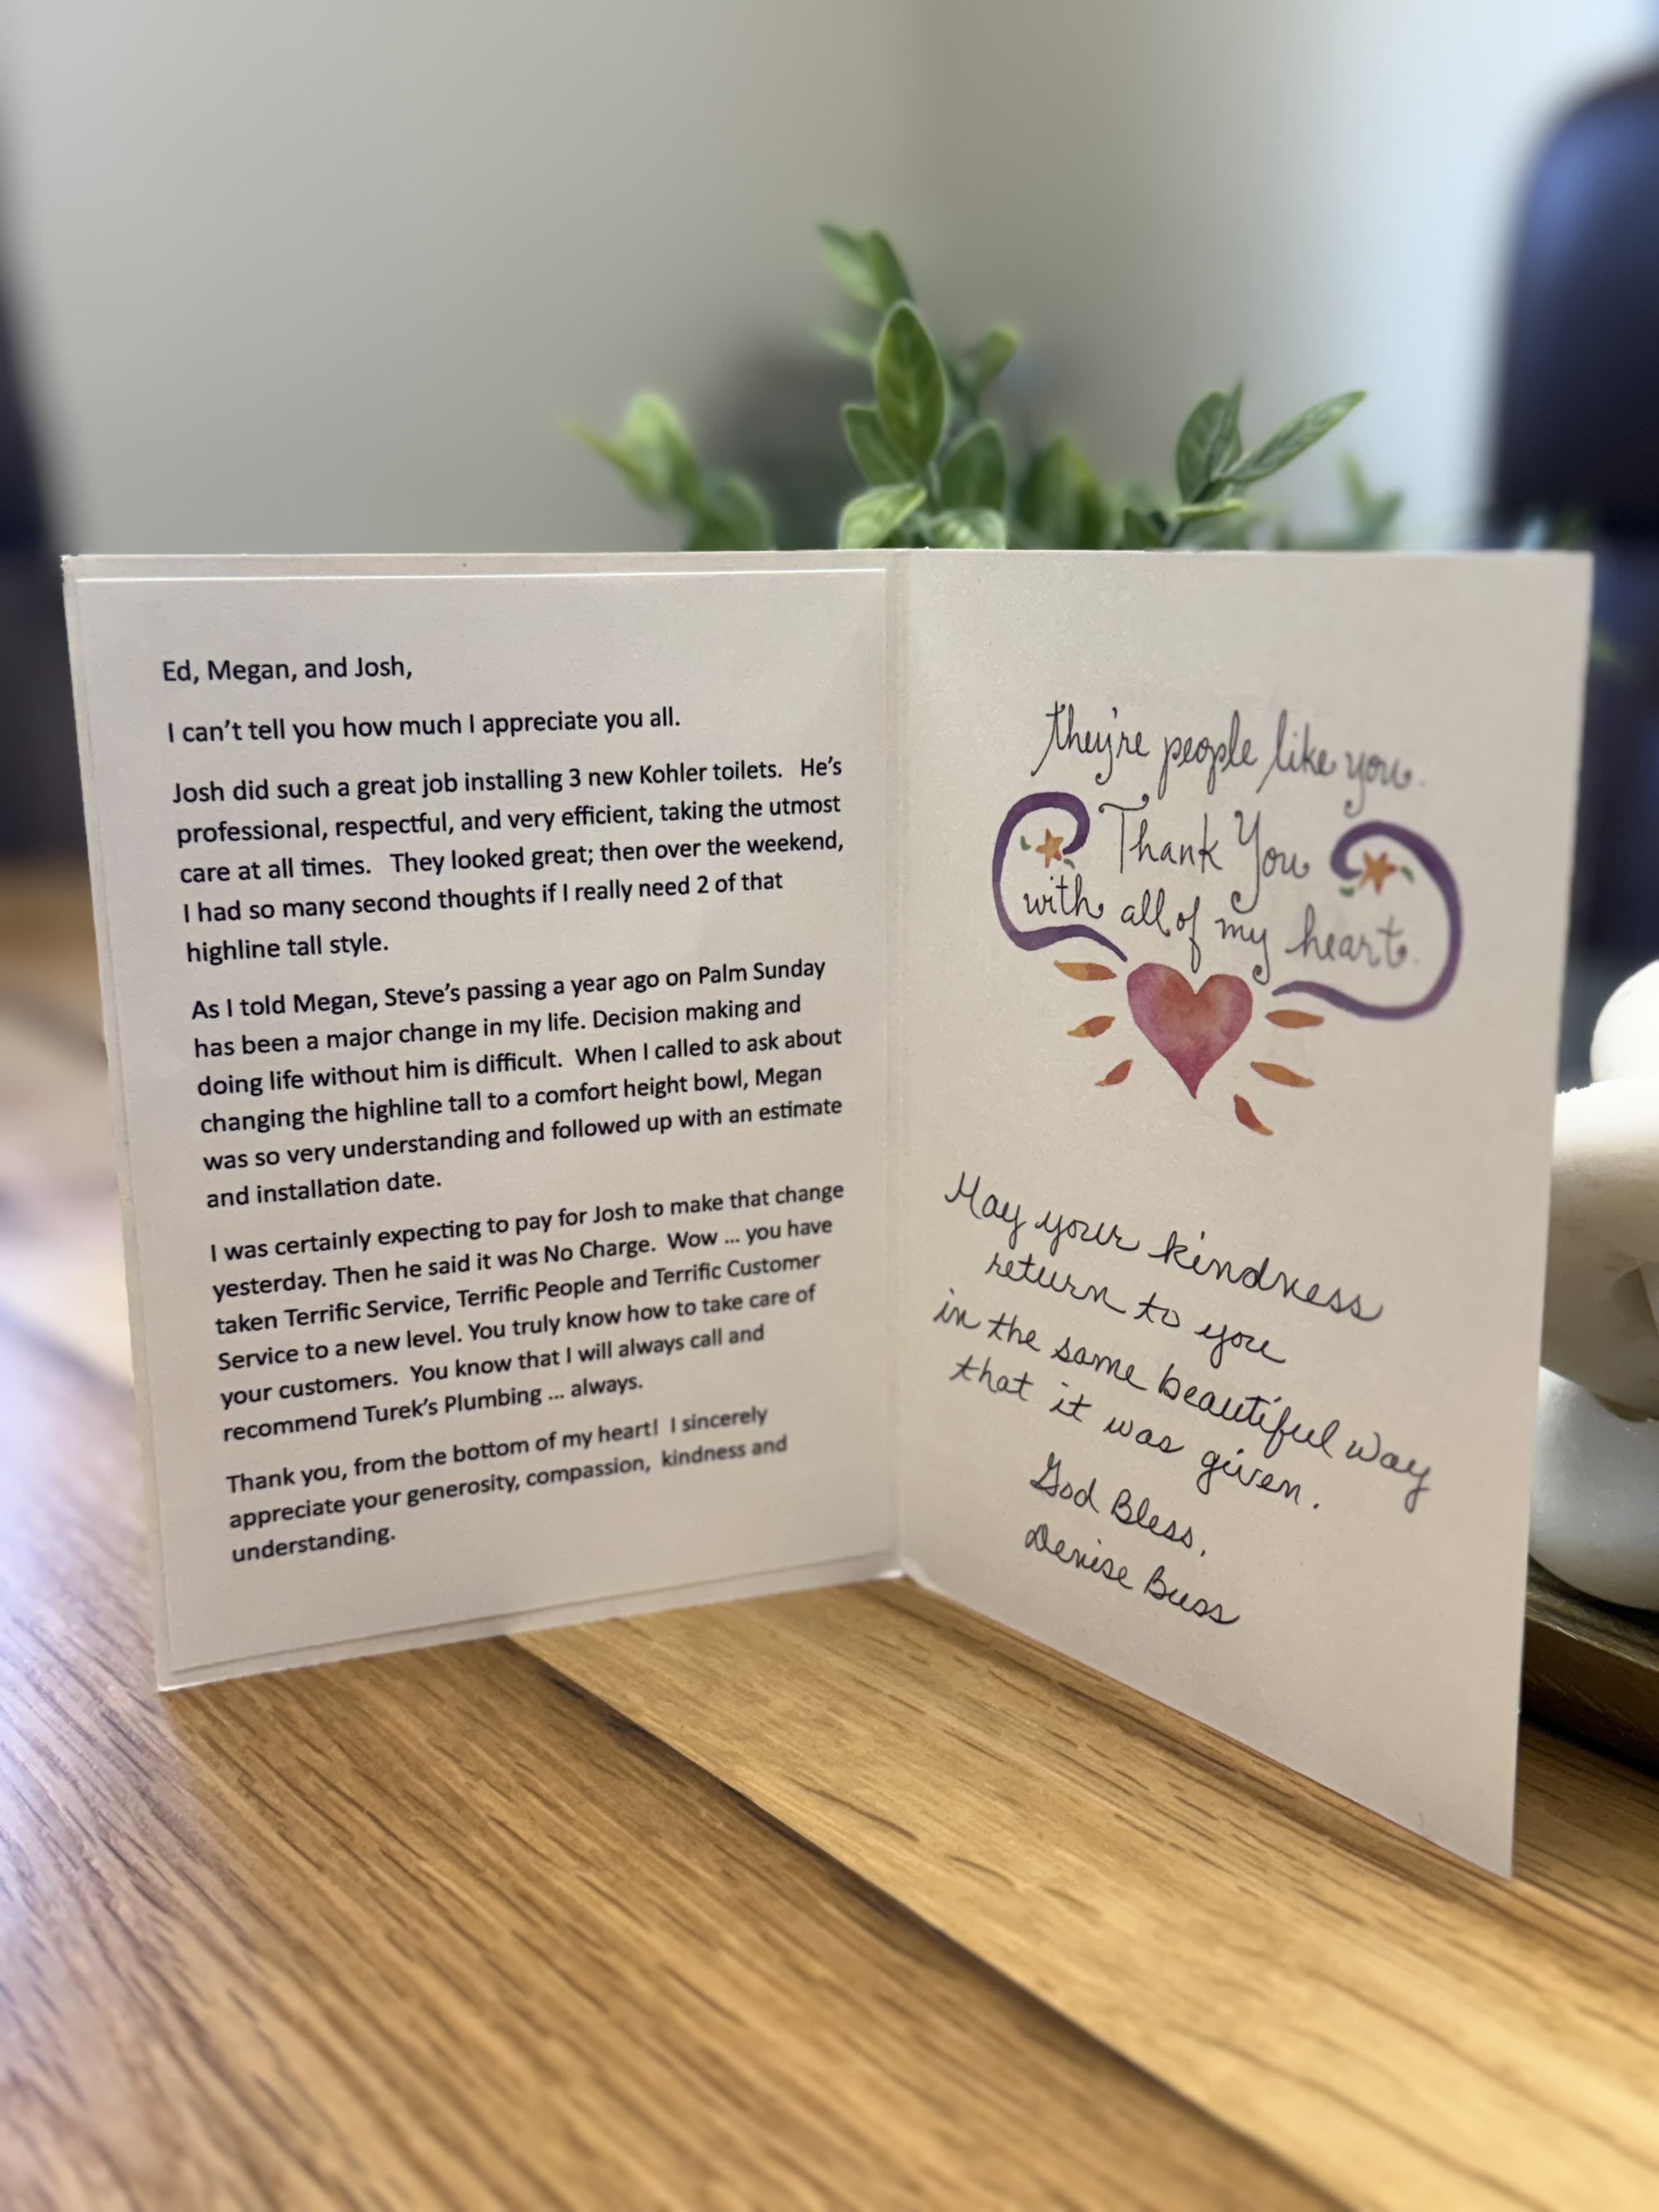 Ed, Megan, and Josh,
I can't tell you how much I appreciate you all.
Josh did such a great job installing 3 new Kohler toilets. He's
professional, respectful, and very efficient, taking the utmost
care at all times. They looked great; then over the weekend,
I had so many second thoughts if I really need 2 of that
highline tall style.
As I told Megan, Steve's passing a year ago on Palm Sunday
has been a major change in my life. Decision making and
doing life without him is difficult. When I called to ask about
changing the highline tall to a comfort height bowl, Megan
was so very understanding and followed up with an estimate
and installation date.
I was certainly expecting to pay for Josh to make that change
yesterday. Then he said it was No Charge. Wow ... you have
taken Terrific Service, Terrific People and Terrific Customer
Service to a new level. You truly know how to take care of
your customers. You know that I will always call and
recommend Turek's Plumbing ... always.
Thank you, from the bottom of my heart! I sincerely
appreciate your generosity, compassion, kindness and
understanding.
they're people like you.
Thank You
with all of my heart.
May your kindness
return to you
in the same beautiful way
that it was given.
God Bless,
Denise Buss